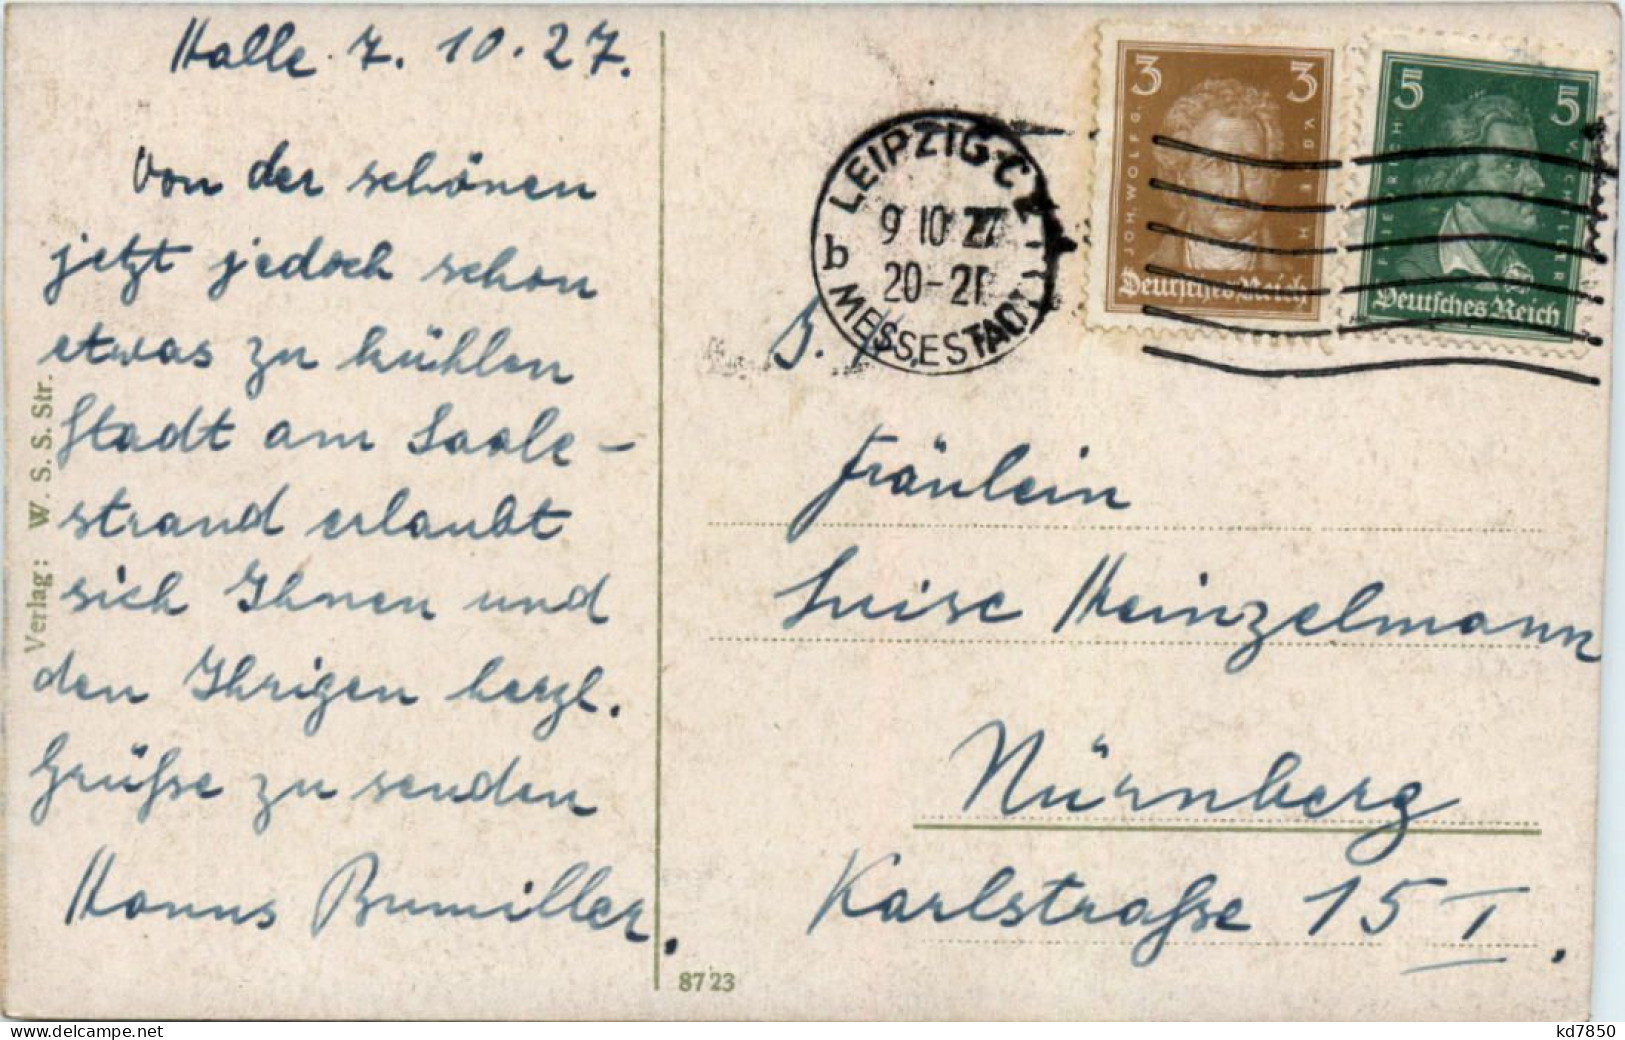 Halle 7. 10. 27.
Von der schönen
jetzt jedoch schon
etwas zu kühlen
Stadt am Saale-
strand erlaubt
sich Ihnen und
den Ihrigen herzl.
Grüße zu senden
Hanns Bumiller.
Verlag: W. S. S. Str.
8723
LEIPZIG C 2
9 10 27
20-21
b
MESSESTADT
3 3
JOH. WOLFG. V. GOETHE
Deutsches Reich
5 5
FRIEDRICH V. SCHILLER
Deutsches Reich
Fräulein
Luise Heinzelmann
Nürnberg
Karlstraße 15 I.
kd7850